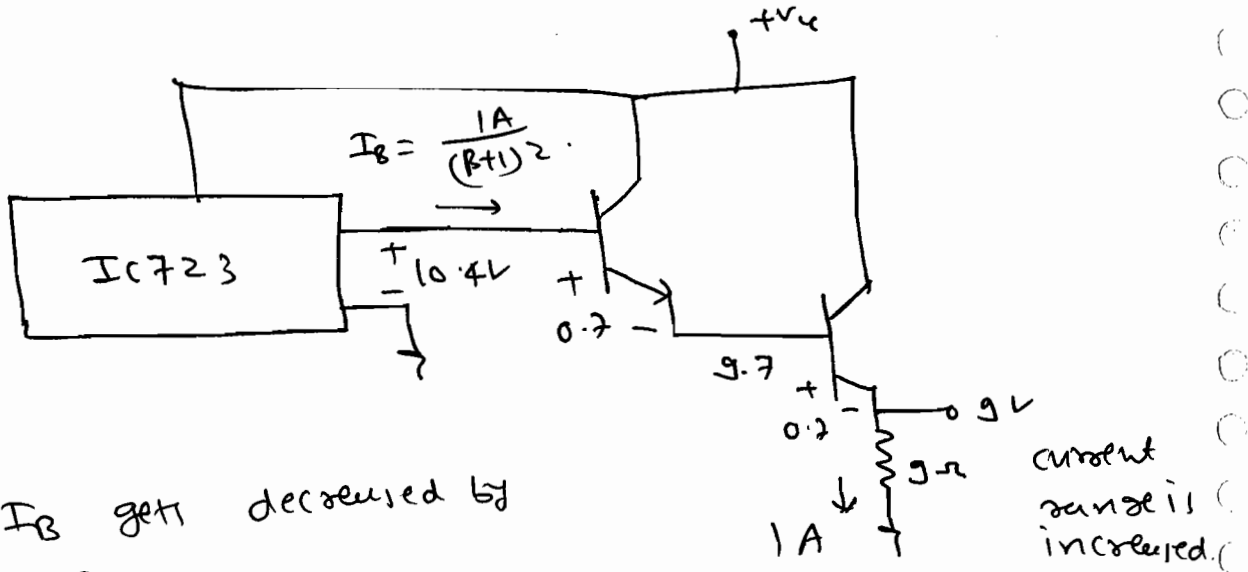 +Vcc
IB = 1A / (β+1)2.
IC723
+
10.4V
-
+
0.7 -
9.7
+
0.7 -
9V
9Ω
1A
current
range is
increased.
IB gets decreased by